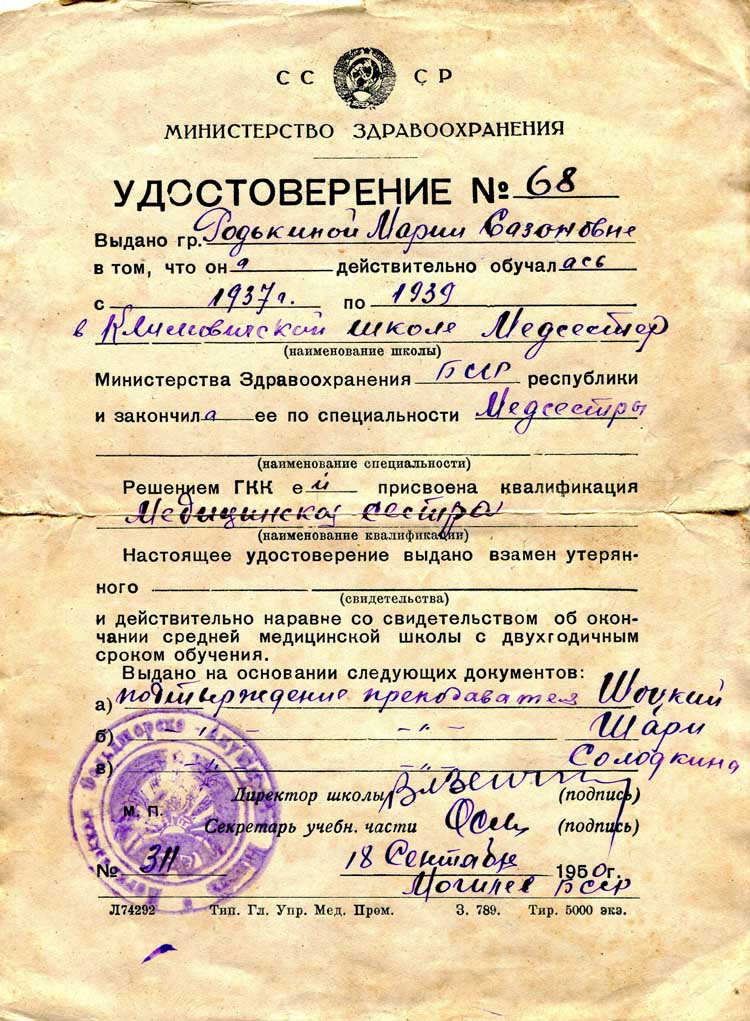 СС СР
МИНИСТЕРСТВО ЗДРАВООХРАНЕНИЯ
УДОСТОВЕРЕНИЕ № 68
Выдано гр. Родькиной Марии Сазоновне
в том, что он а действительно обучал ась
с 1937 г. по 1939
в Климовичской школе Медсестер
(наименование школы)
Министерства Здравоохранения БССР республики
и закончил а ее по специальности Медсестры
(наименование специальности)
Решением ГКК е й присвоена квалификация
Медицинской сестры
(наименование квалификации)
Настоящее удостоверение выдано взамен утерян-
ного
(свидетельства)
и действительно наравне со свидетельством об окон-
чании средней медицинской школы с двухгодичным
сроком обучения.
Выдано на основании следующих документов:
а) подтверждение преподавателя Шоцкий
б) -"- -"- Шари
Солодкина
в) -"-
Директор школы (подпись)
М. П.
Секретарь учебн. части (подпись)
№ 311 18 Сентября 1950г.
Могилев БССР
Л74292 Тип. Гл. Упр. Мед. Пром. З. 789. Тир. 5000 экз.